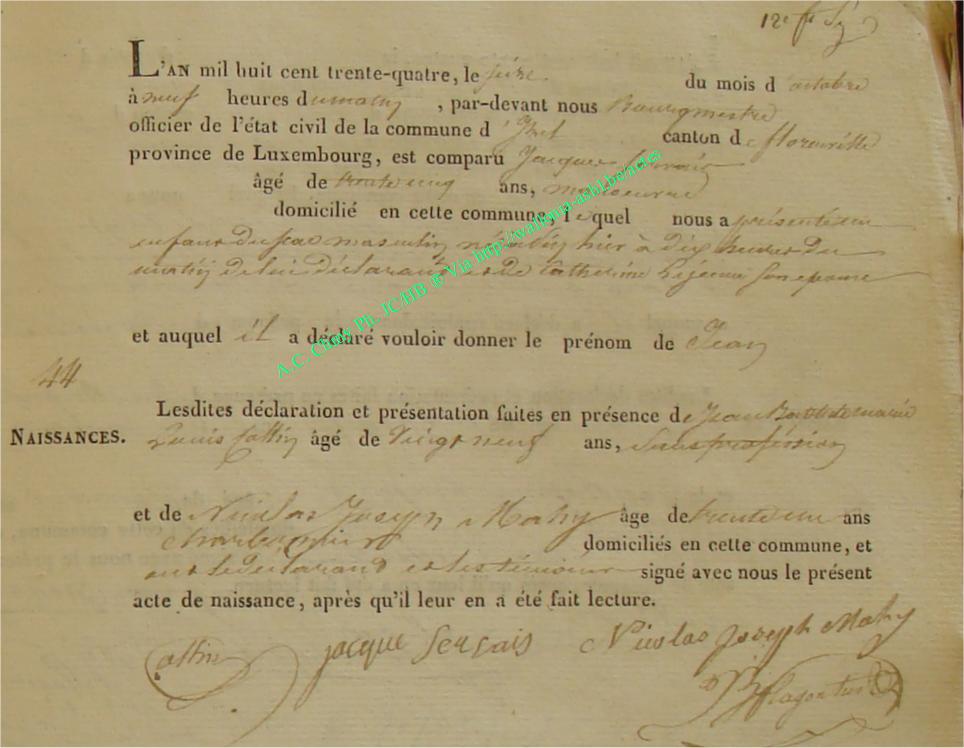 12e f
L'AN mil huit cent trente-quatre, le seize du mois d'octobre
à neuf heures du matin, par-devant nous Bourgmestre
officier de l'état civil de la commune d' canton de florenville
province de Luxembourg, est comparu Jacques Servais
âgé de trente cinq ans, manoeuvre
domicilié en cette commune, lequel nous a présenté un
enfant du sexe masculin né hier à dix heures du
matin de lui déclarant et de Catherine Lejeune son epouse
et auquel il a déclaré vouloir donner le prénom de Jean
44
Lesdites déclaration et présentation faites en présence de Jean Baptiste marie
NAISSANCES. Louis Collin âgé de Vingt neuf ans, Sans profession
et de Nicolas Joseph Mahy âge de trente un ans
domiciliés en cette commune, et
ont le declarant et les témoins signé avec nous le présent
acte de naissance, après qu'il leur en a été fait lecture.
Jacque Servais Nicolas Joseph Mahy
A.C. Chiny Ph. JC/HB ® Via http://wallonia-asbl.be/actes